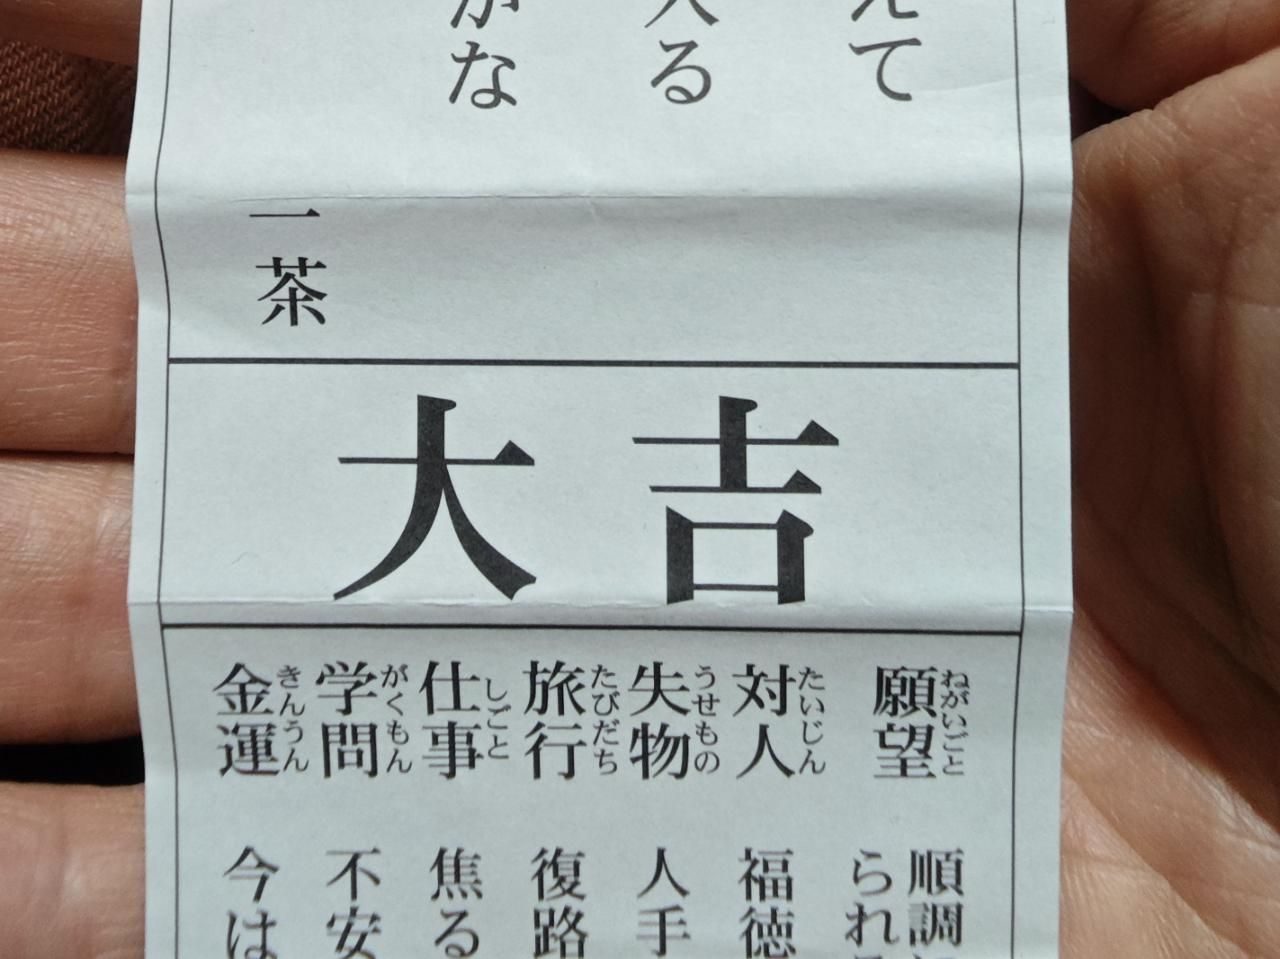 えて
入る
かな
一茶
大吉
願望 ねがいごと 順調に
られる
対人 たいじん 福徳
失物 うせもの 人手
旅行 たびだち 復路
仕事 しごと 焦る
学問 がくもん 不安
金運 きんうん 今は